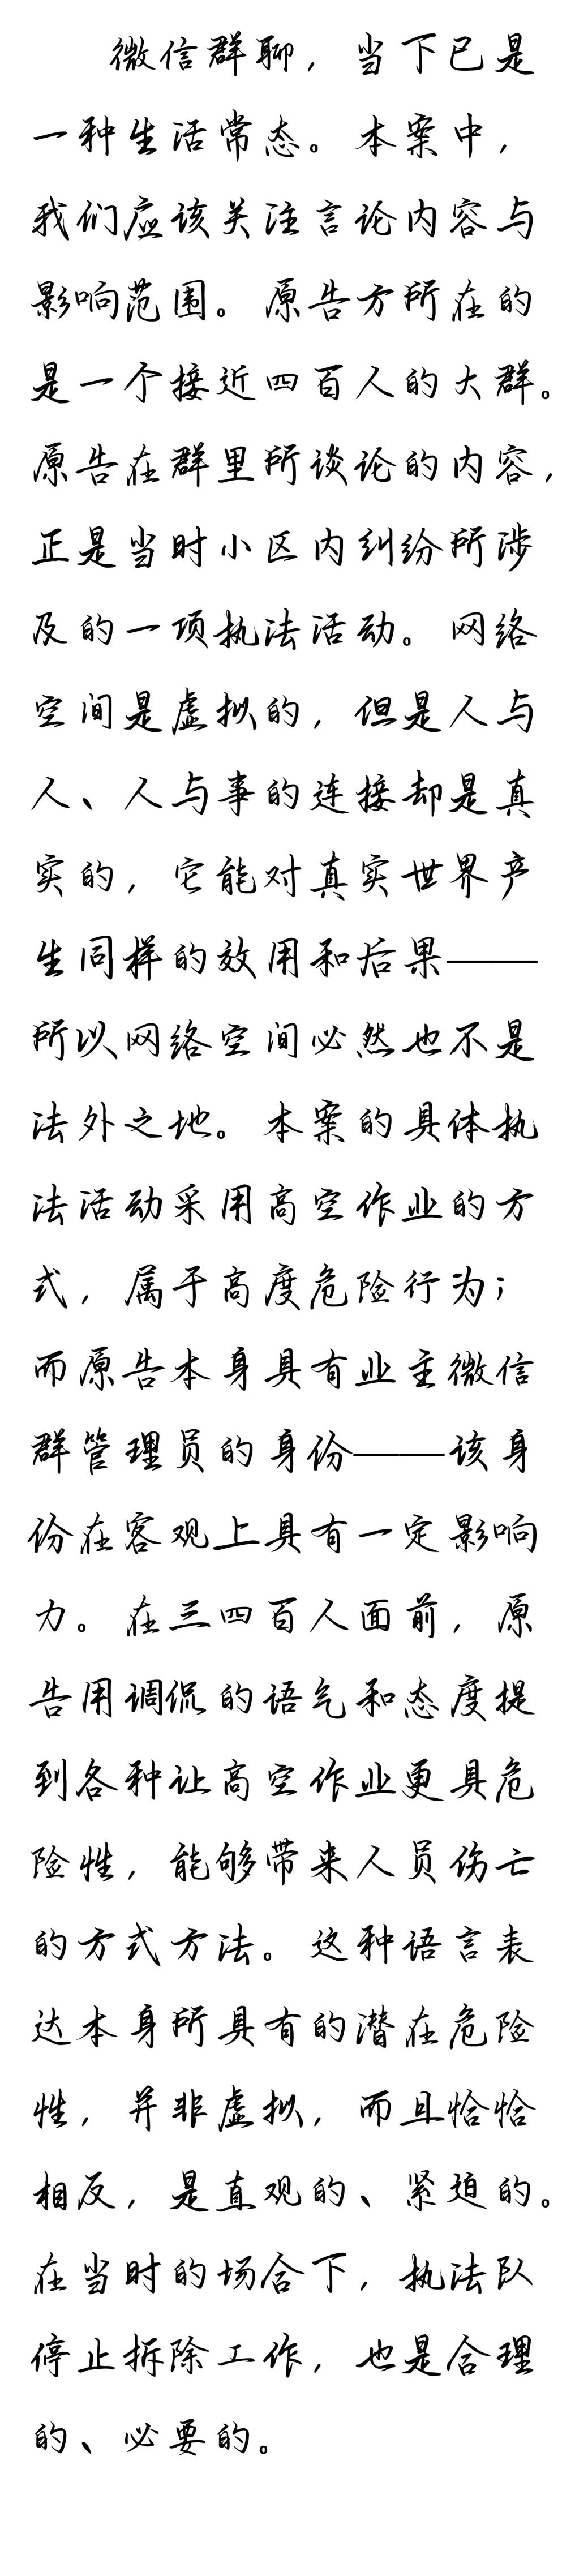 微信群聊，当下已是
一种生活常态。本案中，
我们应该关注言论内容与
影响范围。原告方所在的
是一个接近四百人的大群。
原告在群里所谈论的内容，
正是当时小区内纠纷所涉
及的一项执法活动。网络
空间是虚拟的，但是人与
人、人与事的连接却是真
实的，它能对真实世界产
生同样的效用和后果——
所以网络空间必然也不是
法外之地。本案的具体执
法活动采用高空作业的方
式，属于高度危险行为；
而原告本身具有业主微信
群管理员的身份——该身
份在客观上具有一定影响
力。在三四百人面前，原
告用调侃的语气和态度提
到各种让高空作业更具危
险性，能够带来人员伤亡
的方式方法。这种语言表
达本身所具有的潜在危险
性，并非虚拟，而且恰恰
相反，是直观的、紧迫的。
在当时的场合下，执法队
停止拆除工作，也是合理
的、必要的。